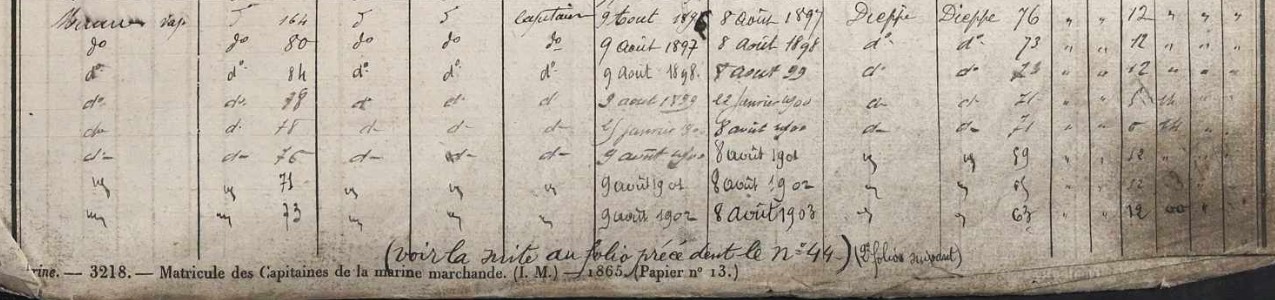 vap 5 164 5 5 Capitaine 9 Août 1896 8 Août 1897 Dieppe Dieppe 76 " " 12 " " "
do do 80 do do do 9 Août 1897 8 Août 1898 do do 73 " " 12 " " "
do do 84 do do do 9 Août 1898 8 Août 99 do do 73 " " 12 " " "
do do 78 do do d 9 août 1899 janvier 1900 do do 71 " " 5
do d 78 d d d janvier 8 août 1900 do do 71 " " 6
do do 76 do do do 9 août 1900 8 août 1901 " " 69 " " 12 " "
" " 71 " " " 9 août 1901 8 août 1902 " " " " 12
" " 73 " " " 9 août 1902 8 Août 1903 " " 63 " " 12
(voir la suite au folio précédent le n° 44) (2e folio suivant)
rine. — 3218. — Matricule des Capitaines de la marine marchande. (I. M.) — 1865. (Papier n° 13.)